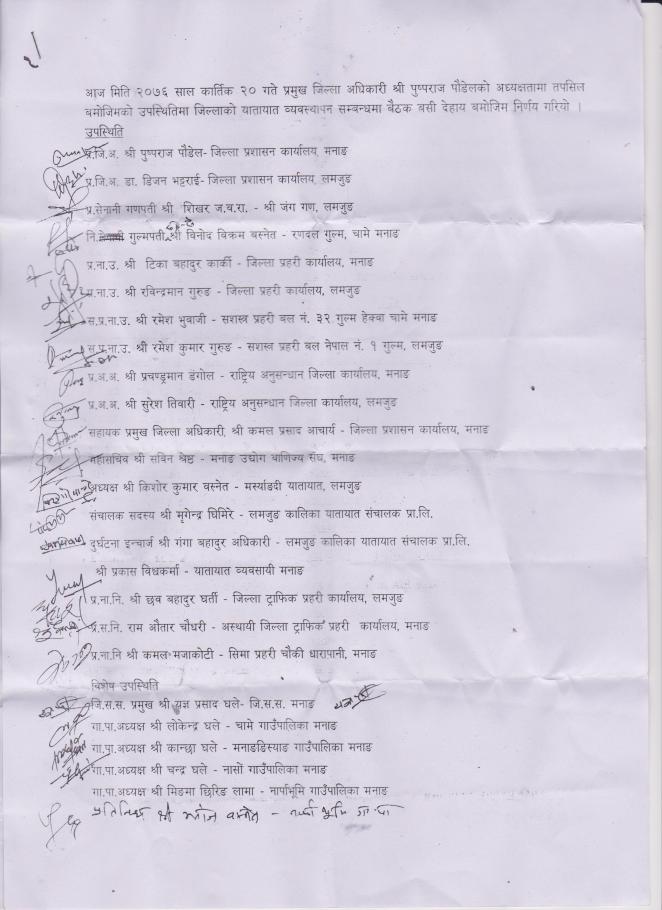 आज मिति २०७६ साल कार्तिक २० गते प्रमुख जिल्ला अधिकारी श्री पुष्पराज पौडेलको अध्यक्षतामा तपसिल
बमोजिमको उपस्थितिमा जिल्लाको यातायात व्यवस्थापन सम्बन्धमा बैठक बसी देहाय बमोजिम निर्णय गरियो ।
उपस्थिति
प्र.जि.अ. श्री पुष्पराज पौडेल- जिल्ला प्रशासन कार्यालय, मनाङ
प्र.जि.अ. डा. डिजन भट्टराई- जिल्ला प्रशासन कार्यालय, लमजुङ
प्र.सेनानी गणपती श्री शिखर ज.ब.रा. - श्री जंग गण, लमजुङ
नि. गुल्मपती श्री विनोद विक्रम बस्नेत - रणदल गुल्म, चामे मनाङ
प्र.ना.उ. श्री टिका बहादुर कार्की - जिल्ला प्रहरी कार्यालय, मनाङ
प्र.ना.उ. श्री रविन्द्रमान गुरुङ - जिल्ला प्रहरी कार्यालय, लमजुङ
स.प्र.ना.उ. श्री रमेश भुवाजी - सशस्त्र प्रहरी बल नं. ३२ गुल्म हेक्वा चामे मनाङ
स.प्र.ना.उ. श्री रमेश कुमार गुरुङ - सशस्त्र प्रहरी बल नेपाल नं. १ गुल्म, लमजुङ
प्र.अ.अ. श्री प्रचण्डमान डंगोल - राष्ट्रिय अनुसन्धान जिल्ला कार्यालय, मनाङ
प्र.अ.अ. श्री सुरेश तिवारी - राष्ट्रिय अनुसन्धान जिल्ला कार्यालय, लमजुङ
सहायक प्रमुख जिल्ला अधिकारी, श्री कमल प्रसाद आचार्य - जिल्ला प्रशासन कार्यालय, मनाङ
महासचिव श्री सविन श्रेष्ठ - मनाङ उद्योग वाणिज्य संघ, मनाङ
अध्यक्ष श्री किशोर कुमार वस्नेत - मर्स्याङदी यातायात, लमजुङ
संचालक सदस्य श्री मृगेन्द्र घिमिरे - लमजुङ कालिका यातायात संचालक प्रा.लि.
दुर्घटना इन्चार्ज श्री गंगा बहादुर अधिकारी - लमजुङ कालिका यातायात संचालक प्रा.लि.
श्री प्रकास विश्वकर्मा - यातायात व्यवसायी मनाङ
प्र.ना.नि. श्री छव बहादुर घर्ती - जिल्ला ट्राफिक प्रहरी कार्यालय, लमजुङ
प्र.स.नि. राम औतार चौधरी - अस्थायी जिल्ला ट्राफिक प्रहरी कार्यालय, मनाङ
प्र.ना.नि श्री कमल मजाकोटी - सिमा प्रहरी चौकी धारापानी, मनाङ
विशेष उपस्थिति
जि.स.स. प्रमुख श्री यज्ञ प्रसाद घले- जि.स.स. मनाङ
गा.पा.अध्यक्ष श्री लोकेन्द्र घले - चामे गाउँपालिका मनाङ
गा.पा.अध्यक्ष श्री कान्छा घले - मनाङडिस्याङ गाउँपालिका मनाङ
गा.पा.अध्यक्ष श्री चन्द्र घले - नासों गाउँपालिका मनाङ
गा.पा.अध्यक्ष श्री मिङमा छिरिङ लामा - नार्पाभूमि गाउँपालिका मनाङ
प्रतिनिधि श्री वस्नेत - नार्पा भूमि गा.पा